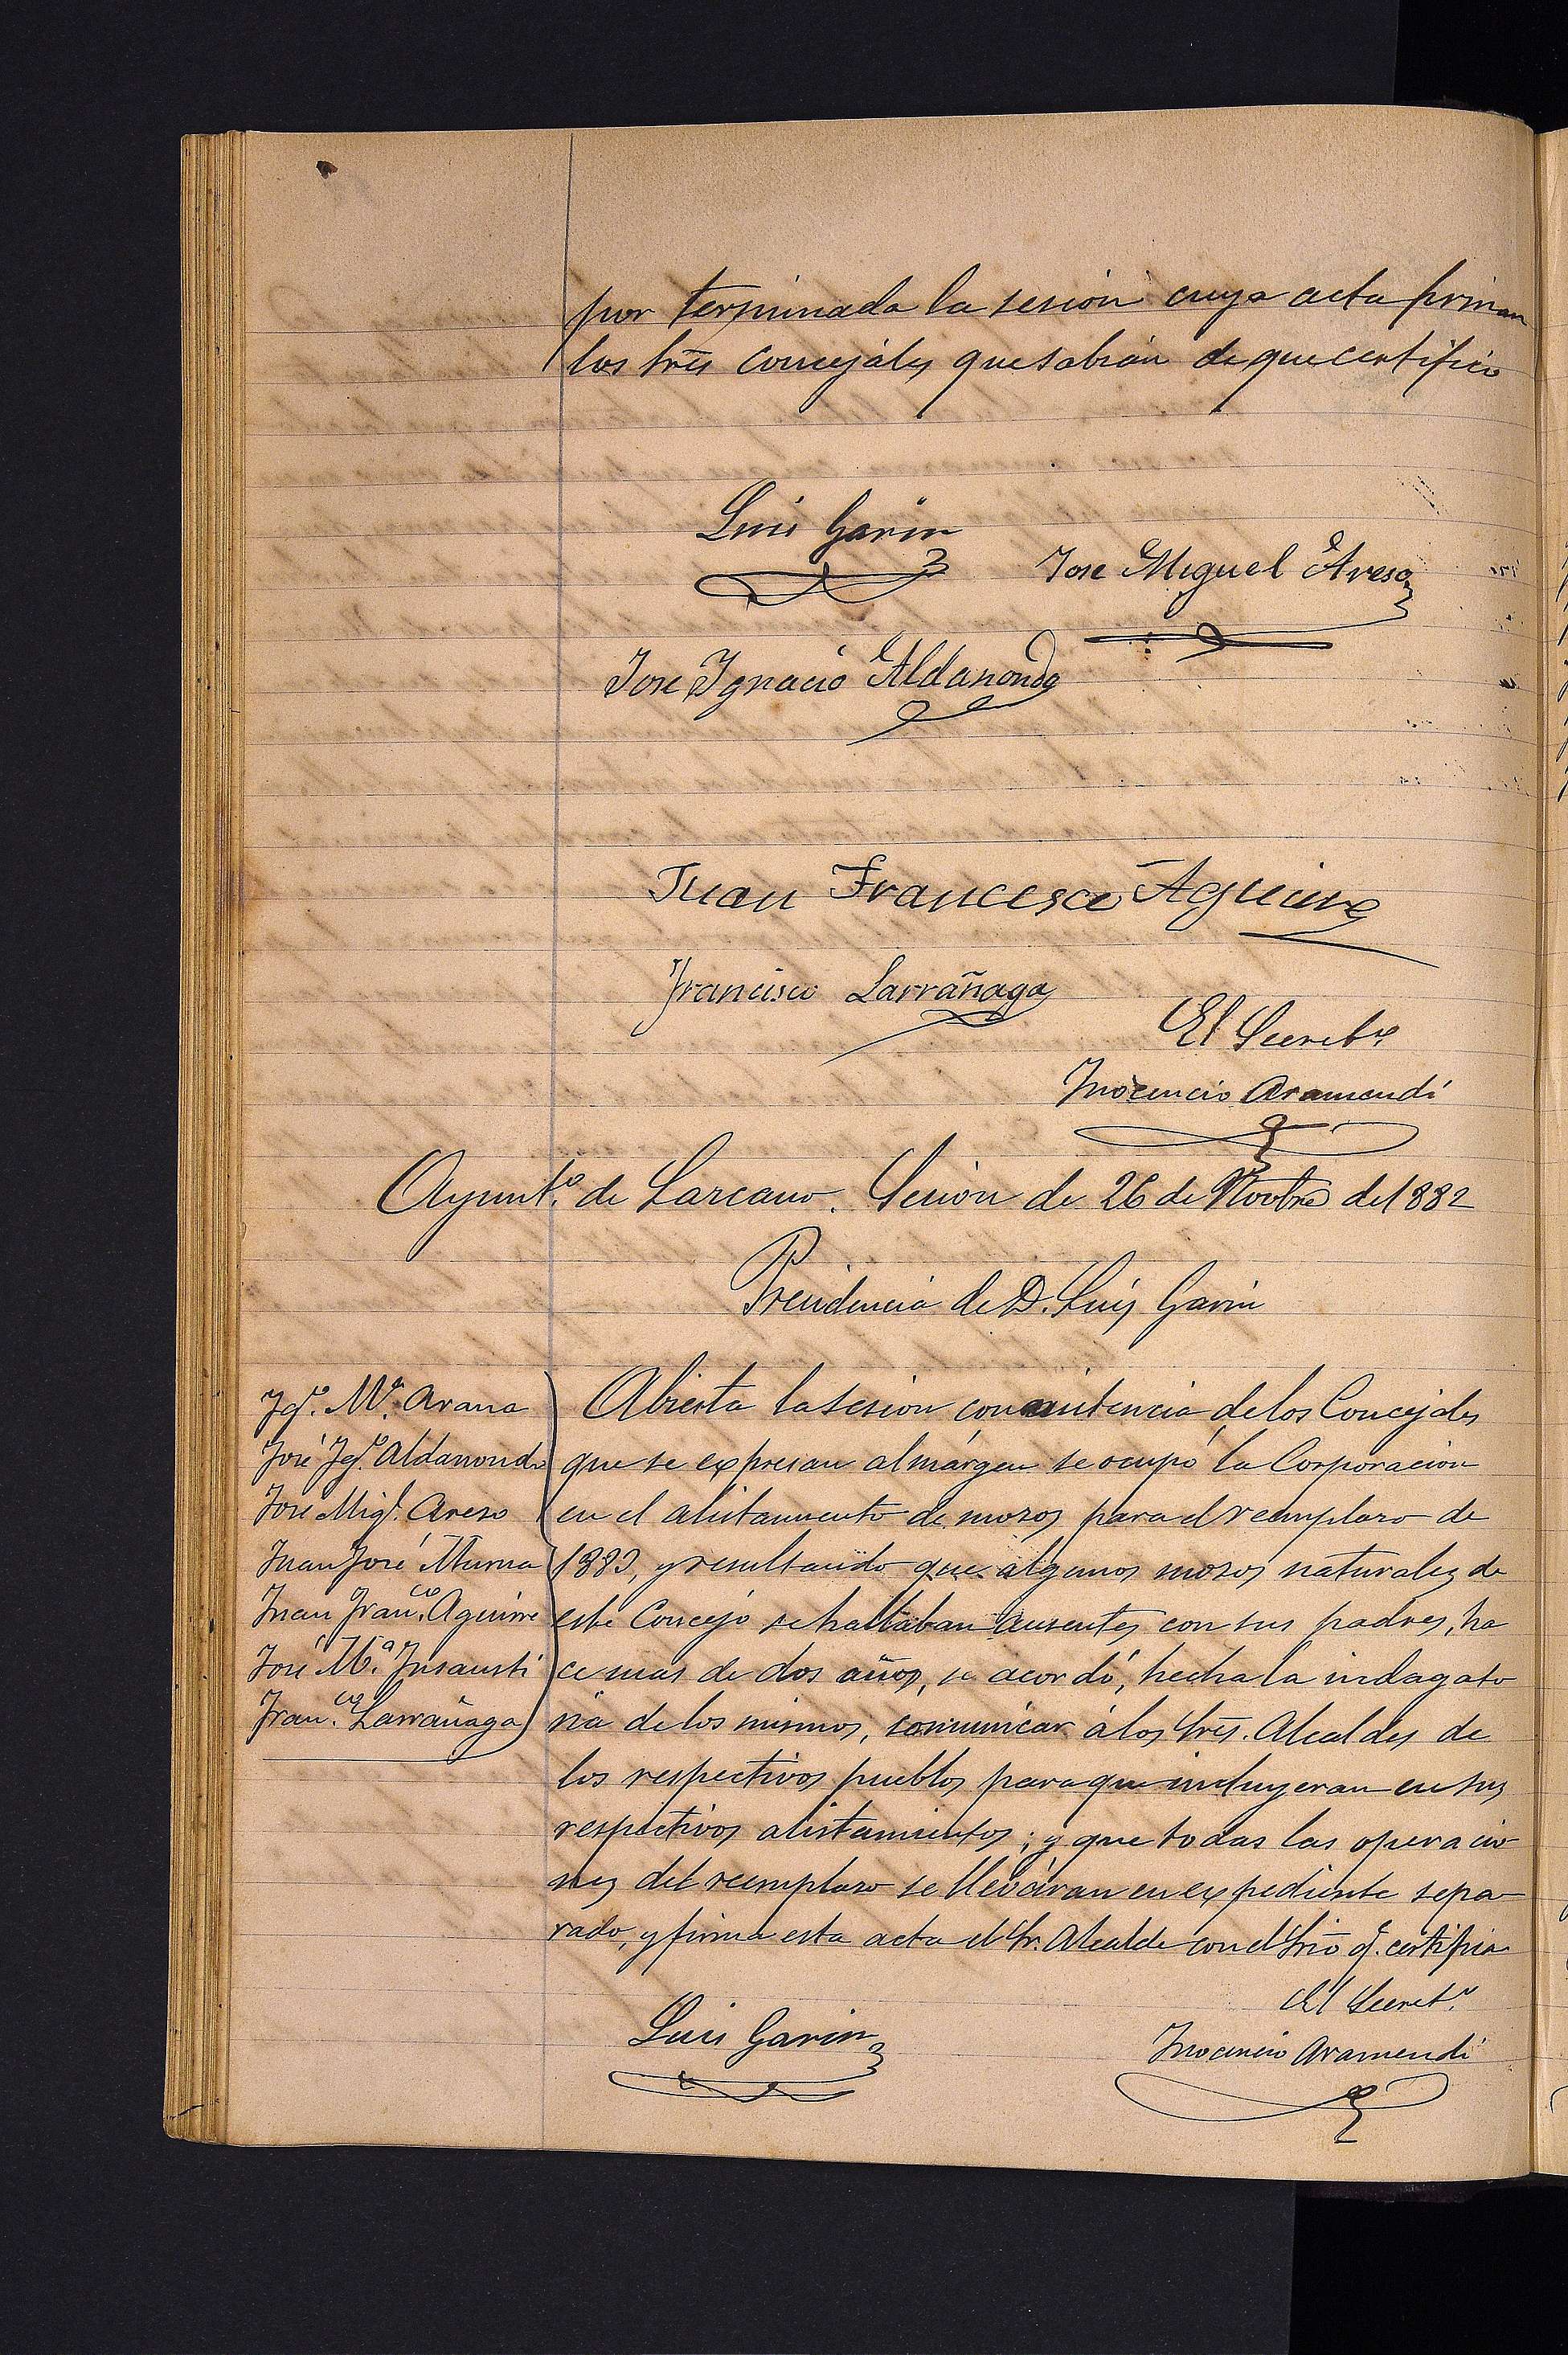 por terminada la sesión cuya acta firman
los Srēs concejáles que sabián de que certifico
Luis Garin
Jose Miguel Areso
Jose Ygnacio Aldanondo
Juan Francesco Aguirre
Francisco Larrañaga
El Secretº
Inocencio Aramendi
Ayuntº de Lazcano. Sesión de 26 de Novbre de 1882
Presidencia de D. Luis Garin
Jgº. Mª. Arana
José Jgº. Aldanondo
José Migl. Areso
Juan José Murua
Juan Franco. Aguirre
José Mª. Insausti
Franco. Larrañaga
Abierta la sesion con asistencia de los Concejales
que se expresan al márgen se ocupó la Corporacion
en el alistamiento de mozos para el reemplazo de
1883, y resultando que algunos mozos naturales de
este Concejo se hallaban ausentes con sus padres, ha
ce mas de dos años, se acordó, hecha la indagato
ria de los mismos, comunicar á los Srēs. Alcaldes de
los respectivos pueblos para que incluyeran en sus
respectivos alistamientos; y que todas las operacio
nes del reemplazo se lleváran en expediente sepa
rado, y firma esta acta el Sr. Alcalde con el Srio q. certifica
El Secretº.
Luis Garin
Inocencio Aramendi